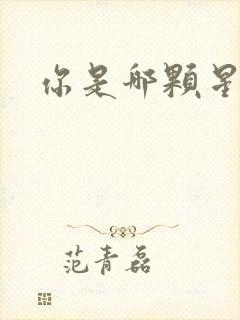 你是哪顆星
范青磊